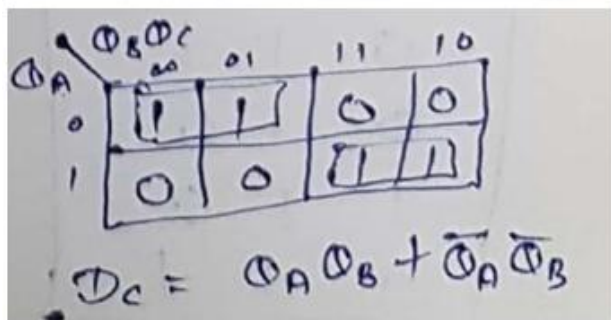 Q_B Q_C
Q_A 00 01 11 10
0 1 1 0 0
1 0 0 1 1
D_C = Q_A Q_B + Q̅_A Q̅_B